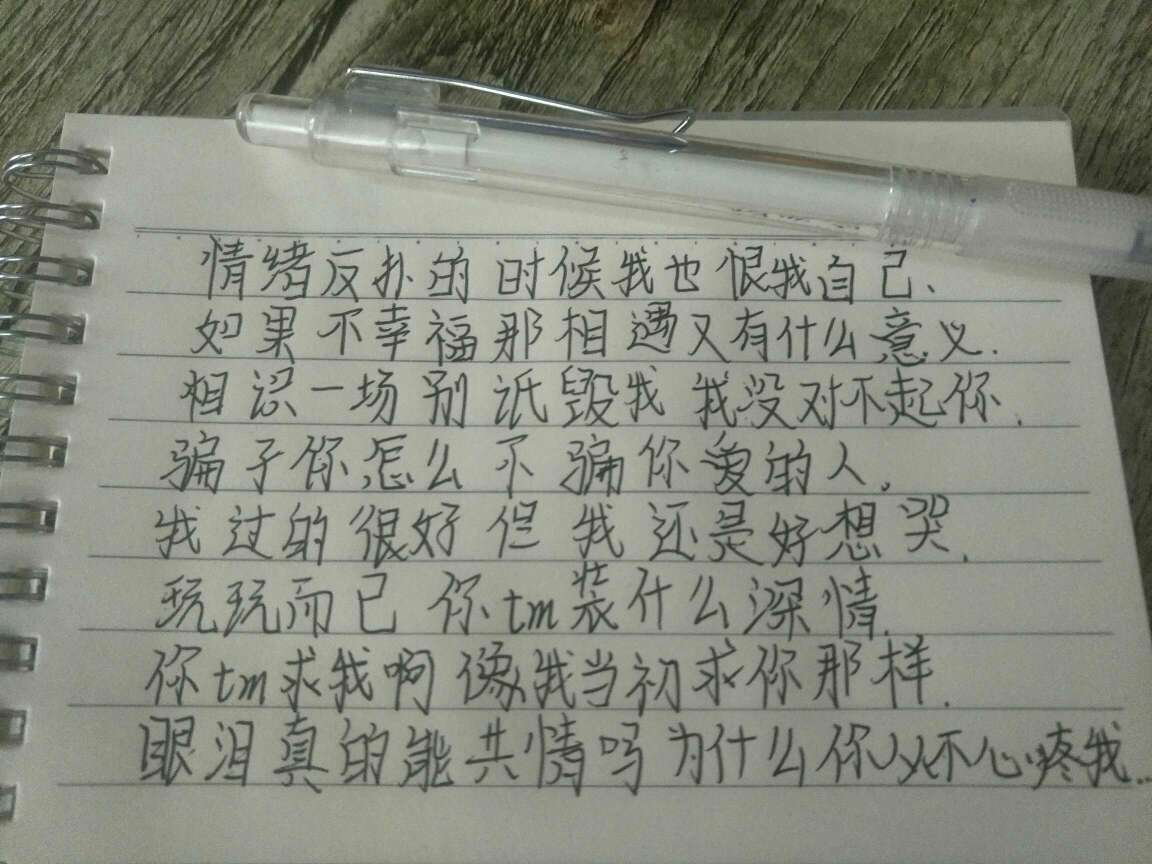 情绪反扑的时候我也恨我自己、
如果不幸福那相遇又有什么意义.
相识一场别诋毁我 我没对不起你.
骗子你怎么不骗你爱的人.
我过的很好但我还是好想哭.
玩玩而已 你tm装什么深情.
你tm求我啊 像我当初求你那样.
眼泪真的能共情吗为什么你从不心疼我...